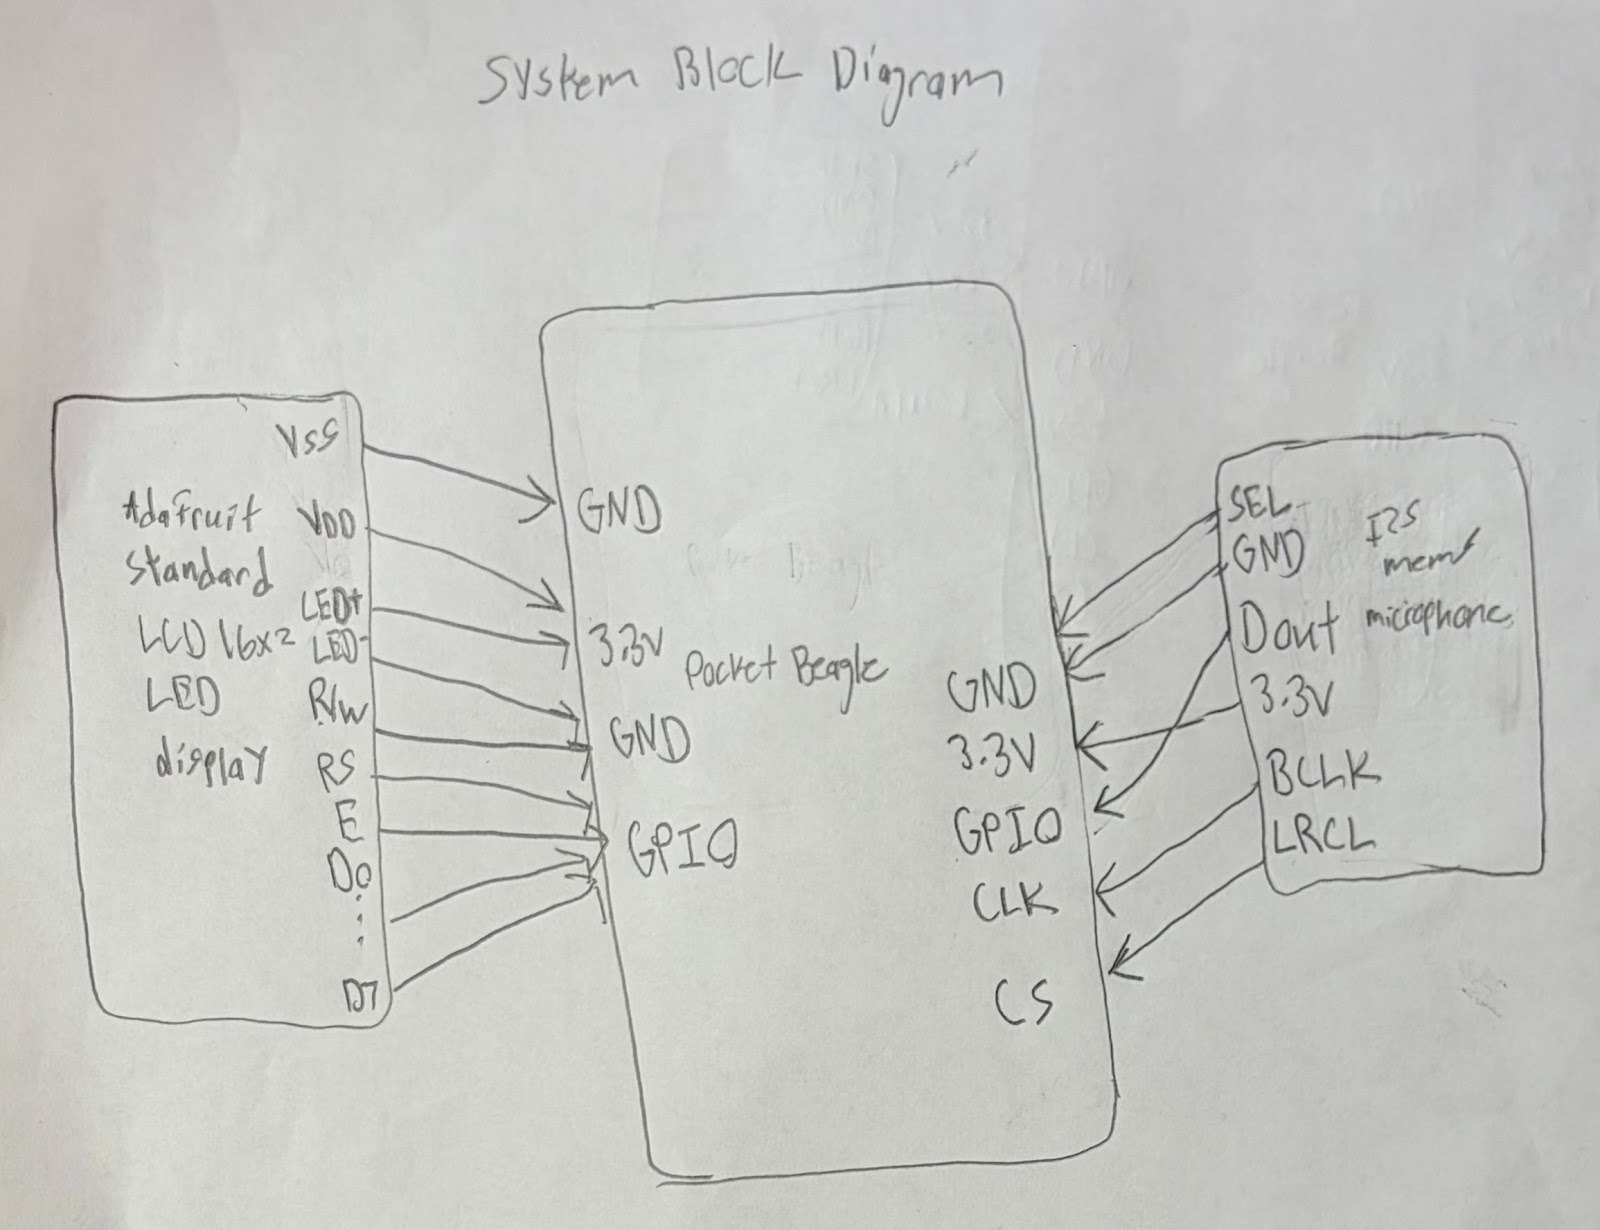 System Block Diagram
Adafruit
Standard
LCD 16x2
LED
display
VSS
VDD
LED+
LED-
R/W
RS
E
D0
D7
GND
3.3V
GND
GPIO
Pocket Beagle
GND
3.3V
GPIO
CLK
CS
SEL
GND
Dout
3.3V
BCLK
LRCL
I2S
mems
microphone